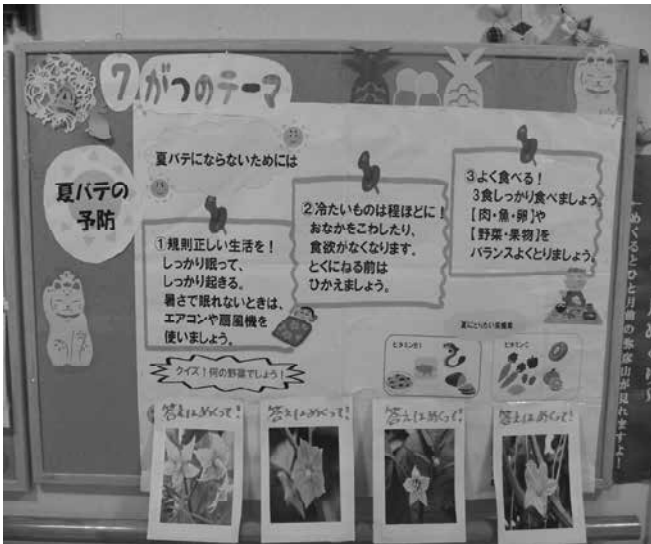 7がつのテーマ
夏バテの
予防
夏バテにならないためには
①規則正しい生活を！
しっかり眠って、
しっかり起きる。
暑さで眠れないときは、
エアコンや扇風機を
使いましょう。
②冷たいものは程ほどに！
おなかをこわしたり、
食欲がなくなります。
とくにねる前は
ひかえましょう。
③よく食べる！
3食しっかり食べましょう。
【肉・魚・卵】や
【野菜・果物】を
バランスよくとりましょう。
夏にとりたい栄養素
ビタミンB1
ビタミンC
クイズ！何の野菜でしょう！
答えはめくって！
答えはめくって！
答えはめくって！
答えはめくって！
めくるとひと月前の弥彦山が見れますよ！